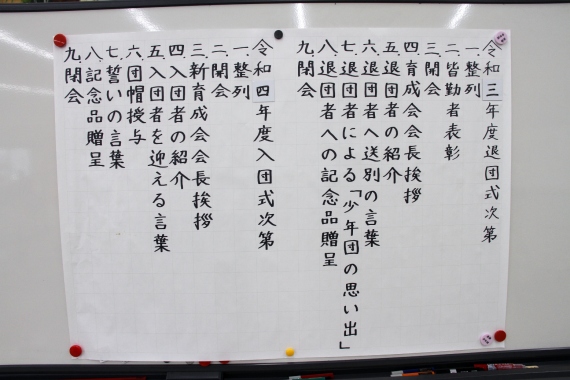 令和三年度退団式次第
一.整列
二.皆勤者表彰
三.開会
四.育成会会長挨拶
五.退団者の紹介
六.退団者へ送別の言葉
七.退団者による「少年団の思い出」
八.退団者への記念品贈呈
九.閉会
令和四年度入団式次第
一.整列
二.開会
三.新育成会会長挨拶
四.入団者の紹介
五.入団者を迎える言葉
六.団帽授与
七.誓いの言葉
八.記念品贈呈
九.閉会